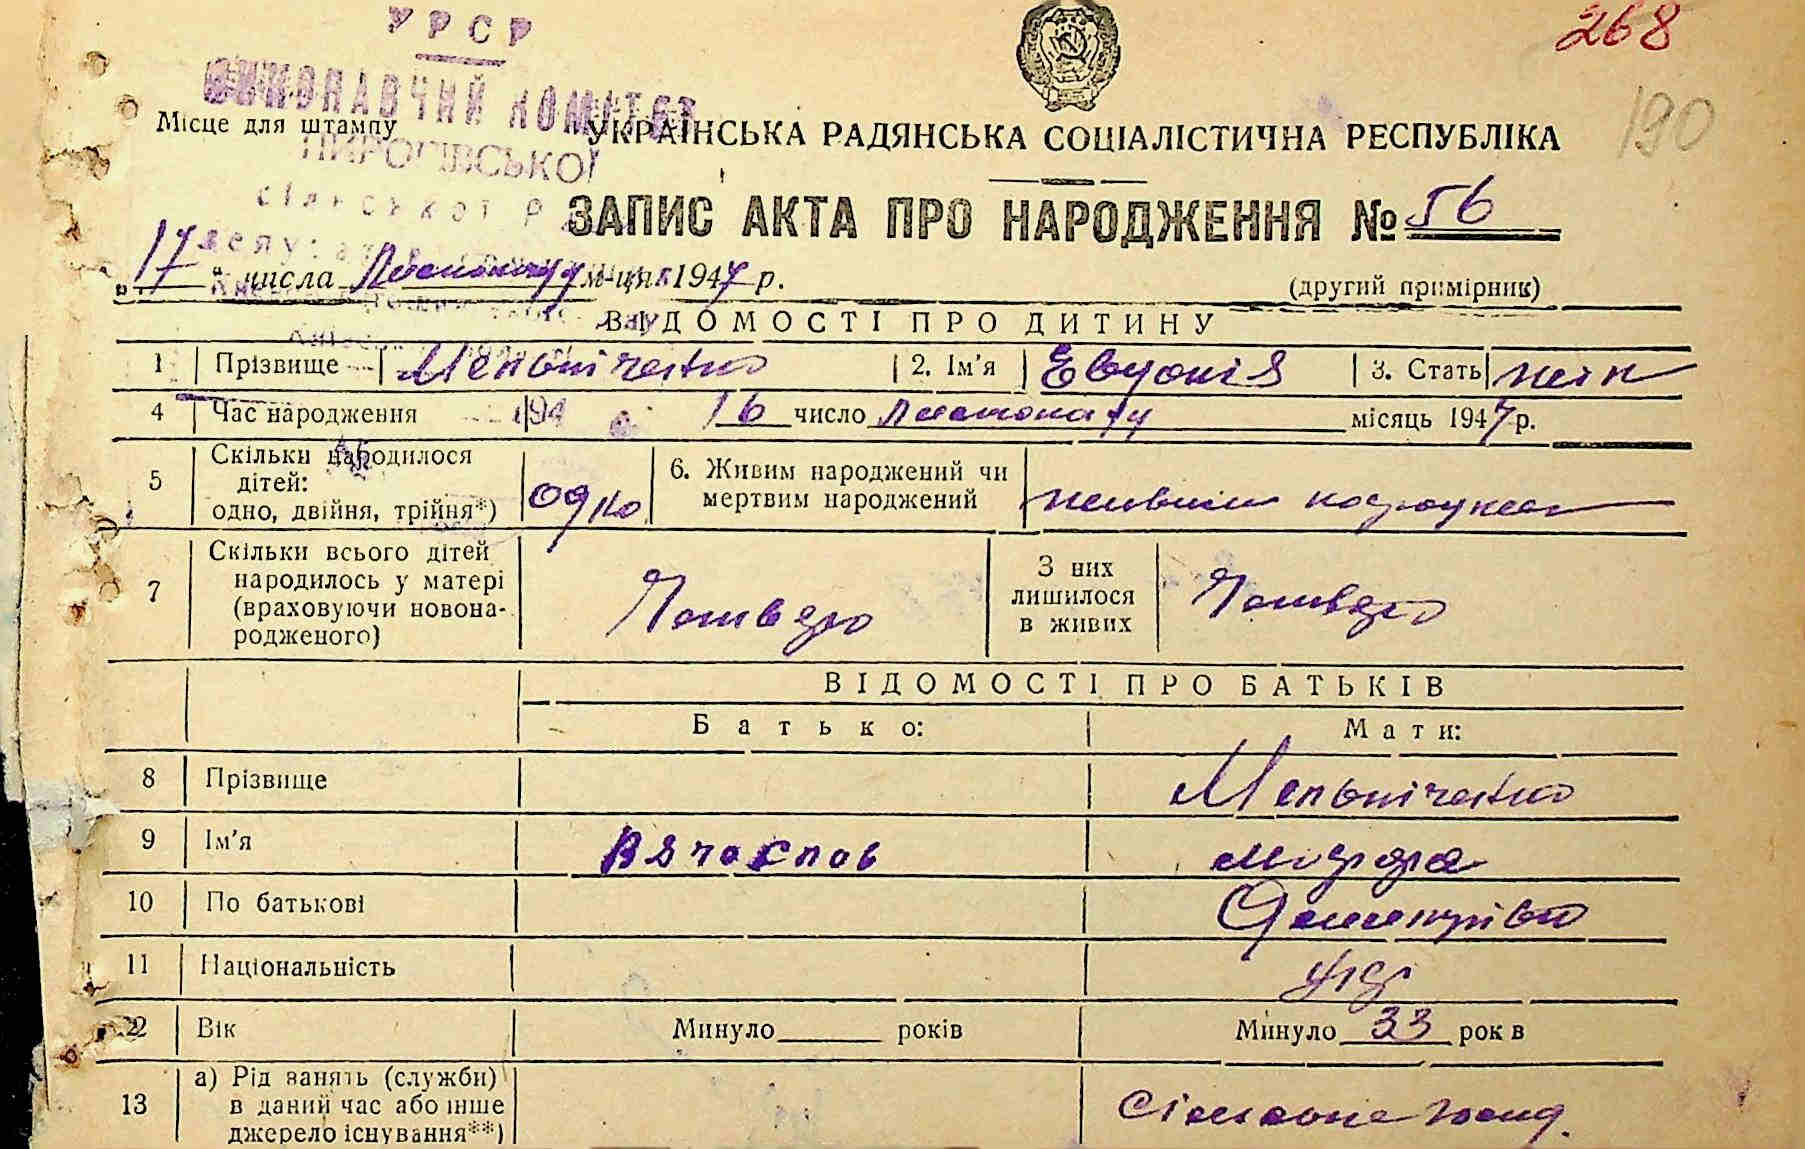 УРСР
268
ВИКОНАВЧИЙ КОМІТЕТ
190
Місце для штампу
УКРАЇНСЬКА РАДЯНСЬКА СОЦІАЛІСТИЧНА РЕСПУБЛІКА
ПИРОГІВСЬКОЇ
сільської
ЗАПИС АКТА ПРО НАРОДЖЕННЯ № 56
„17“ числа Листопаду м-ця 1947 р.
(другий примірник)
ВІДОМОСТІ ПРО ДИТИНУ
1 Прізвище Мельніченко 2. Ім'я Євдокія 3. Стать жін
4 Час народження 194 16 число Листопаду місяць 1947 р.
5 Скільки народилося дітей: одно, двійня, трійня*) одно 6. Живим народжений чи мертвим народжений живим
7 Скільки всього дітей народилось у матері (враховуючи новонародженого) Четверо З них лишилося в живих Четверо
ВІДОМОСТІ ПРО БАТЬКІВ
Батько: Мати:
8 Прізвище Мельніченко
9 Ім'я Вячеслав
10 По батькові
11 Національність укр
12 Вік Минуло років Минуло 33 років
13 а) Рід занять (служби) в даний час або інше джерело існування**)